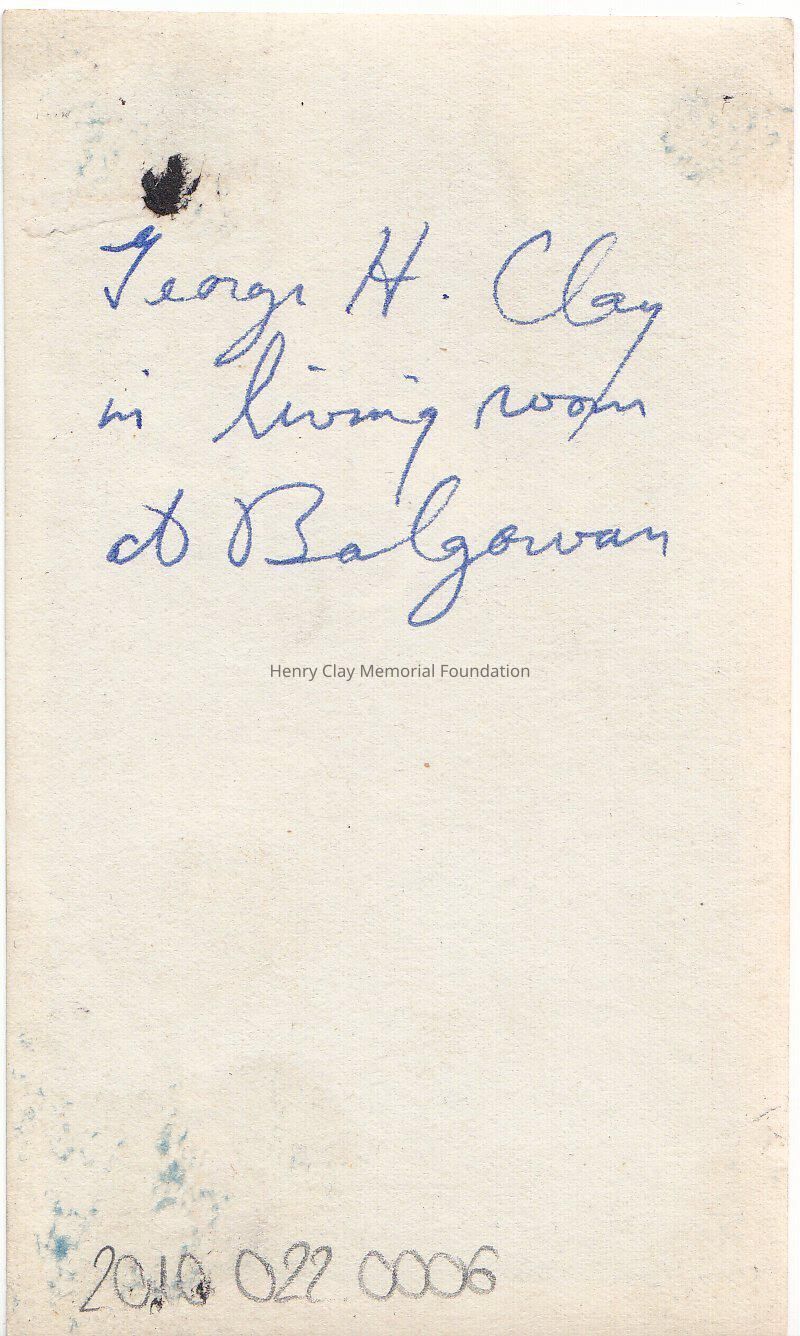 George H. Clay
in living room
at Balgowan
Henry Clay Memorial Foundation
2010 022 0006